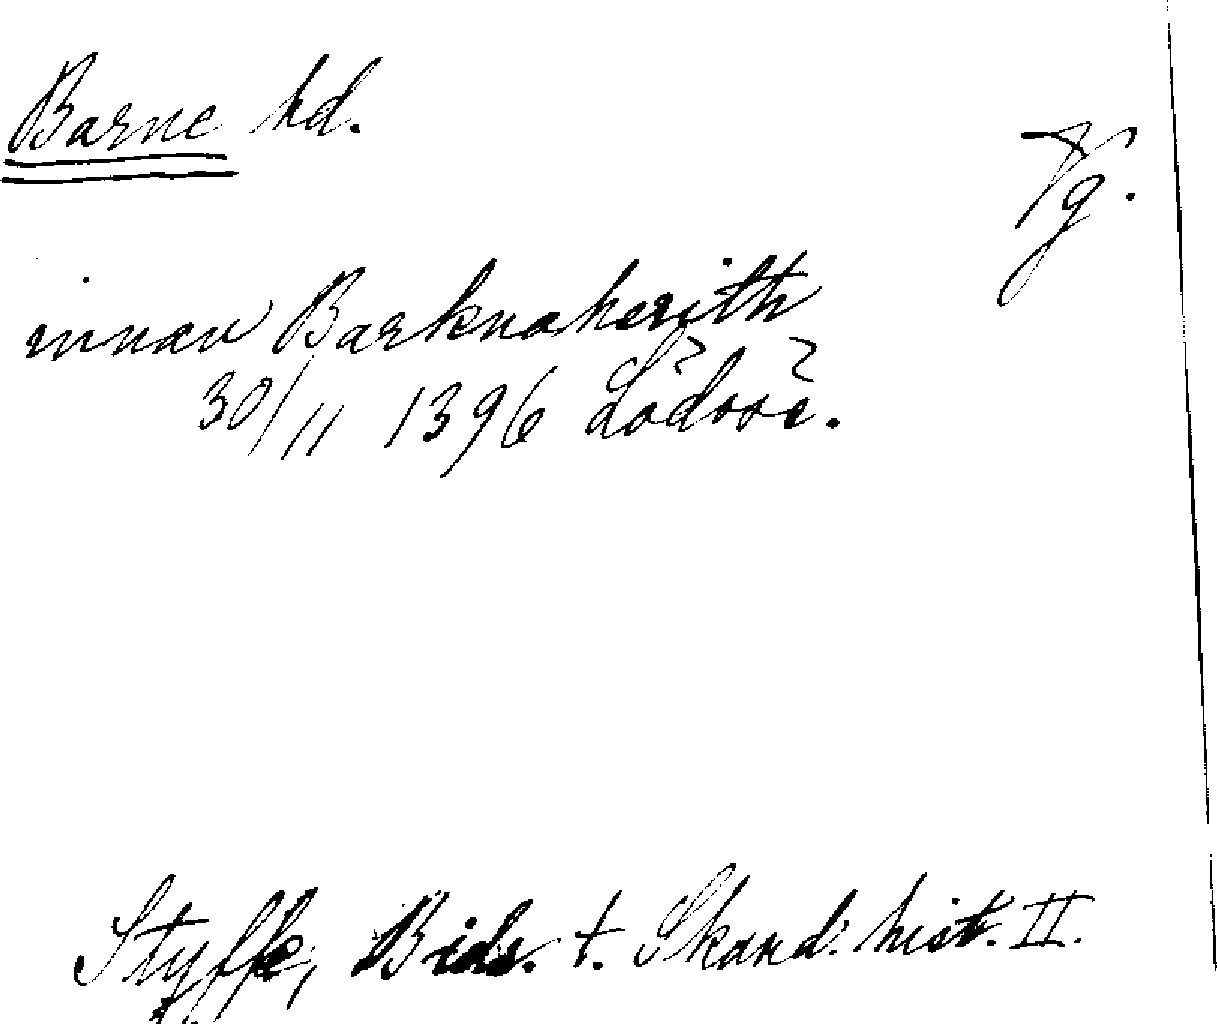 Barne hd.
Vg.
innan Barknaherith
30/11 1396 Lödöse.
Styffe, Bidr. t. Skand. hist. II.